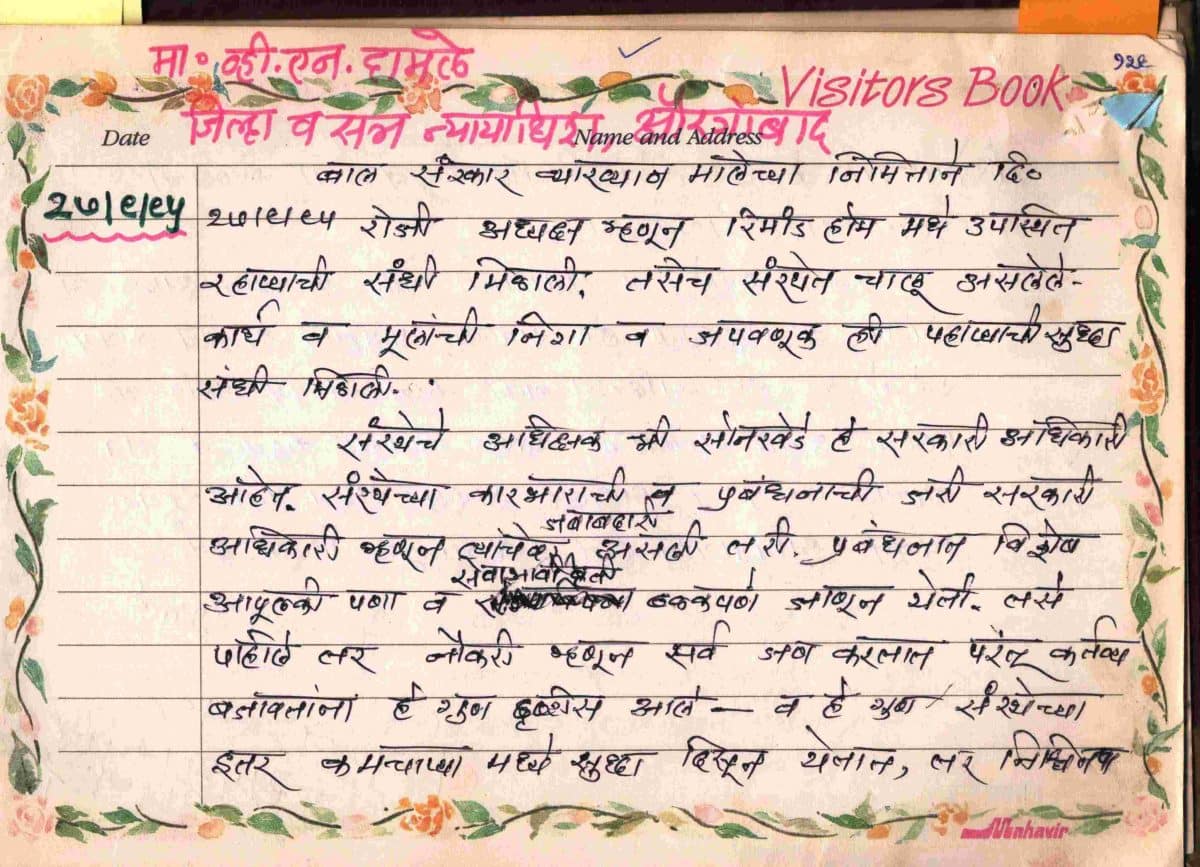 मा॰ व्ही.एन. दामले
१२९
Visitors Book
जिल्हा व सत्र न्यायाधिश, औरंगाबाद
Date Name and Address
बाल संस्कार व्याख्यान मालेच्या निमित्ताने दि०
२७।९।९५
२७।९।९५ रोजी अध्यक्ष म्हणून रिमांड होम मधे उपस्थित
रहाण्याची संधी मिळाली. तसेच संस्थेत चालू असलेले-
कार्य व मूलांची निगा व जपवणूक ही पहाण्याची सुध्दा
संधी मिळाली.
संस्थेचे अधिक्षक श्री सोनखेडे हे सरकारी अधिकारी
आहेत. संस्थेच्या कारभाराची व प्रबंधनाची जरी सरकारी
जबाबदारी
अधिकारी म्हणून त्यांचेवर असली तरी, प्रबंधनात विशेष
सेवाभावी वृत्ती
आपूलकी पणा व ठळकपणे जाणून येती. तसे
पाहिले तर नौकरी म्हणून सर्व जण करतात परंतू कर्तव्य
बजावतांना हे गुण दृष्टीस आले — व हे गुण संस्थेच्या
इतर कर्मचाऱ्या मध्ये सुध्दा दिसून येतात, तर निश्चितच
Mahavir